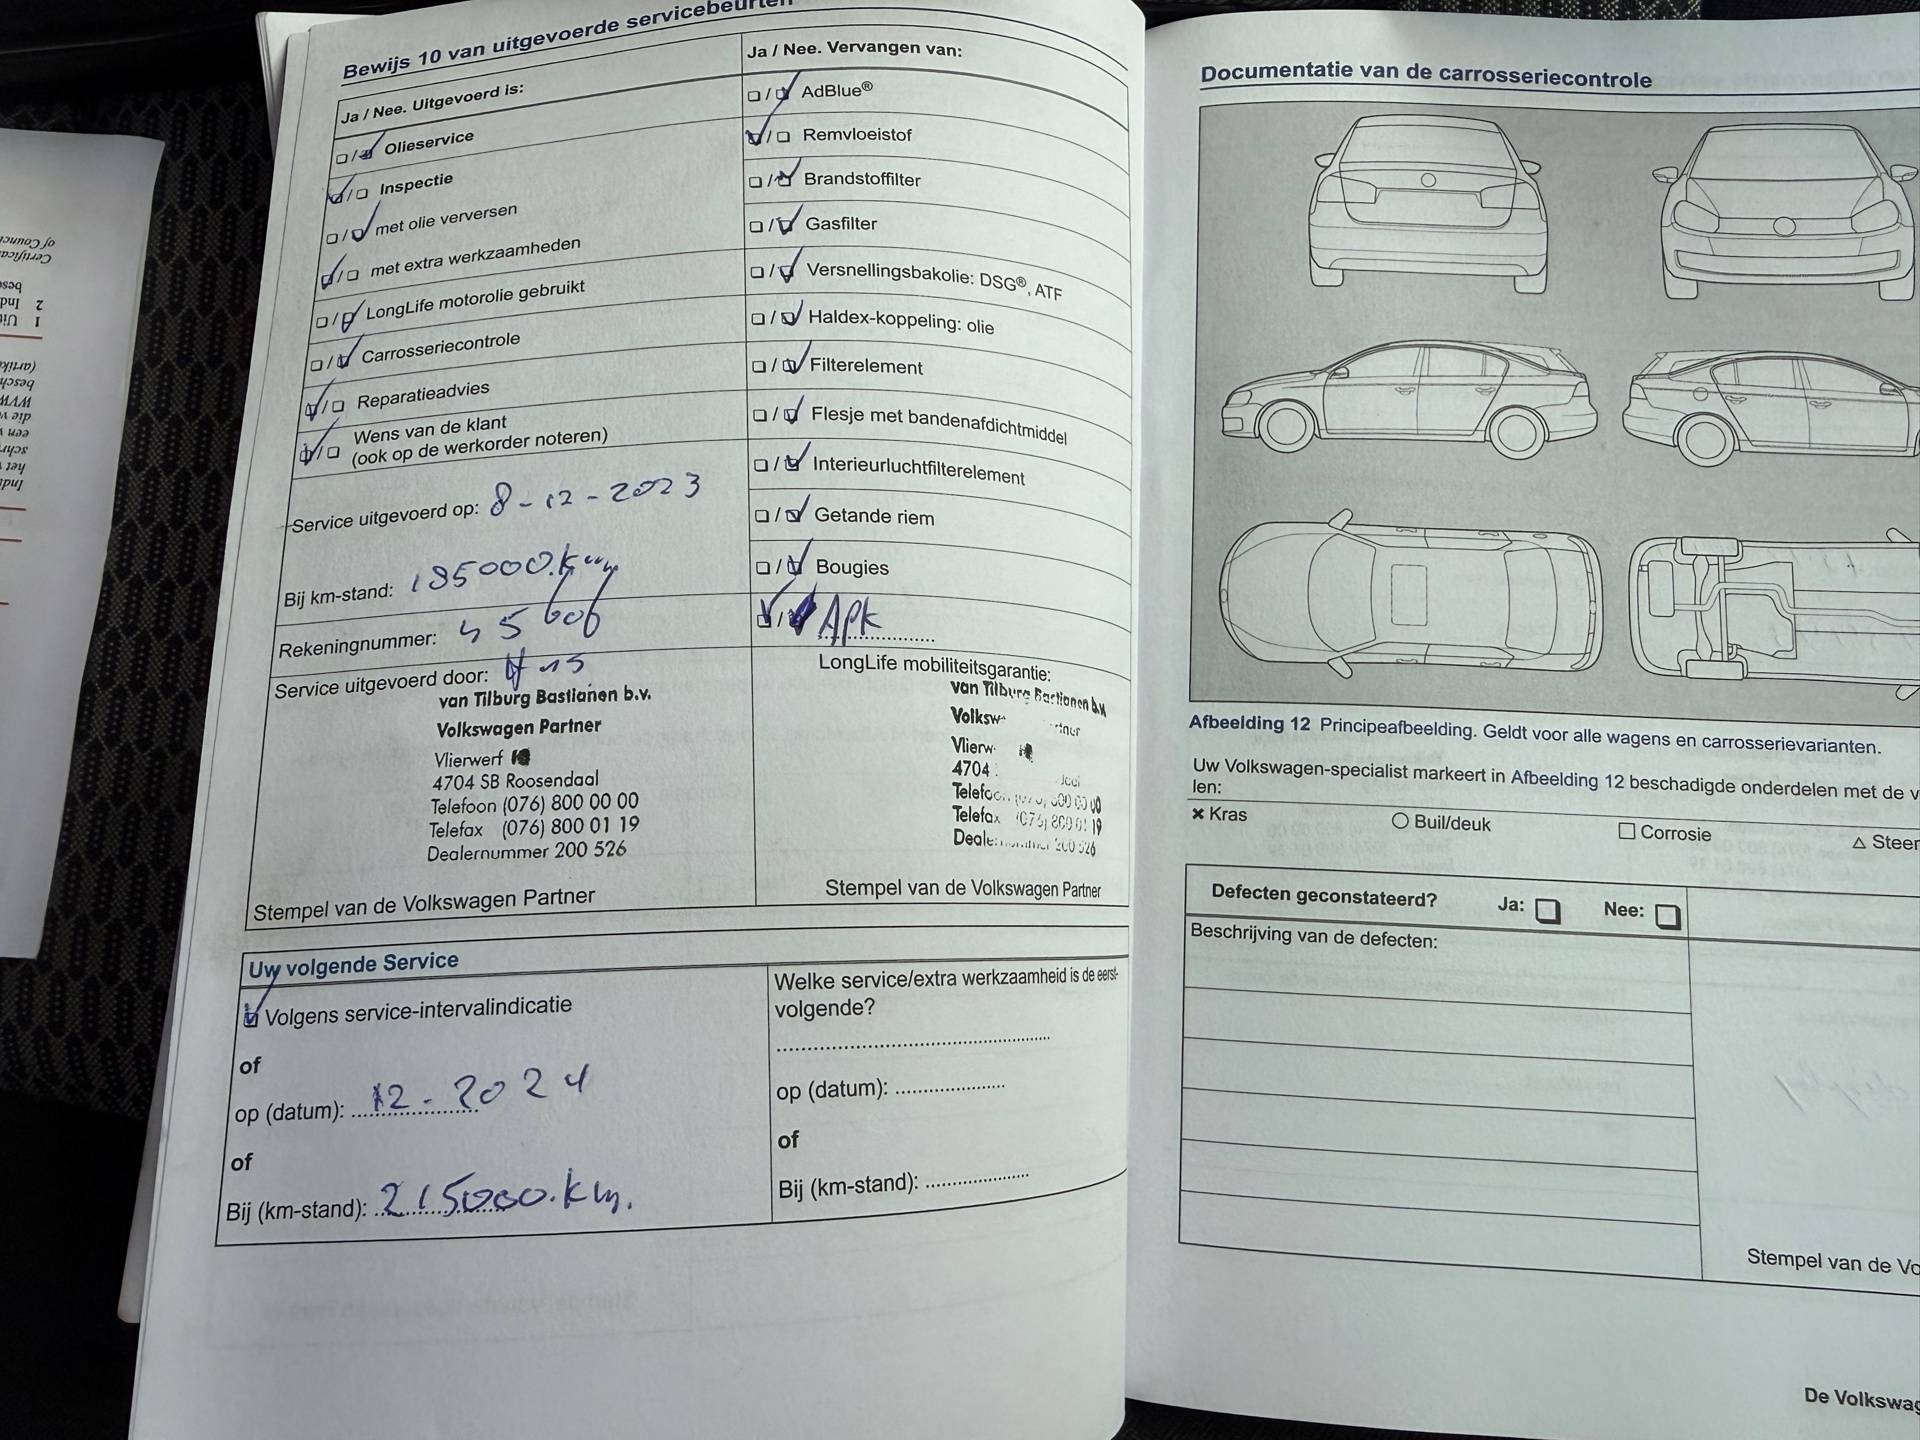 Bewijs 10 van uitgevoerde servicebeurten
Ja / Nee. Uitgevoerd is:
Olieservice
Inspectie
met olie verversen
met extra werkzaamheden
LongLife motorolie gebruikt
Carrosseriecontrole
Reparatieadvies
Wens van de klant
(ook op de werkorder noteren)
Service uitgevoerd op: 8-12-2023
Bij km-stand: 185000.km
Rekeningnummer: 45
Service uitgevoerd door:
van Tilburg Bastianen b.v.
Volkswagen Partner
Vlierwerf
4704 SB Roosendaal
Telefoon (076) 800 00 00
Telefax (076) 800 01 19
Dealernummer 200 526
Stempel van de Volkswagen Partner
Ja / Nee. Vervangen van:
AdBlue®
Remvloeistof
Brandstoffilter
Gasfilter
Versnellingsbakolie: DSG®, ATF
Haldex-koppeling: olie
Filterelement
Flesje met bandenafdichtmiddel
Interieurluchtfilterelement
Getande riem
Bougies
APK
LongLife mobiliteitsgarantie:
van Tilburg Bastianen b.v
Volksw rtner
Vlierw
4704
Telefax (076) 800 01 19
Stempel van de Volkswagen Partner
Uw volgende Service
Volgens service-intervalindicatie
of
op (datum): 12-2024
of
Bij (km-stand): 215000.km.
Welke service/extra werkzaamheid is de eerst-
volgende?
op (datum):
of
Bij (km-stand):
Documentatie van de carrosseriecontrole
Afbeelding 12 Principeafbeelding. Geldt voor alle wagens en carrosserievarianten.
Uw Volkswagen-specialist markeert in Afbeelding 12 beschadigde onderdelen met de v
len:
Kras
Buil/deuk
Corrosie
Steen
Defecten geconstateerd? Ja: Nee:
Beschrijving van de defecten:
Stempel van de Vo
De Volkswag